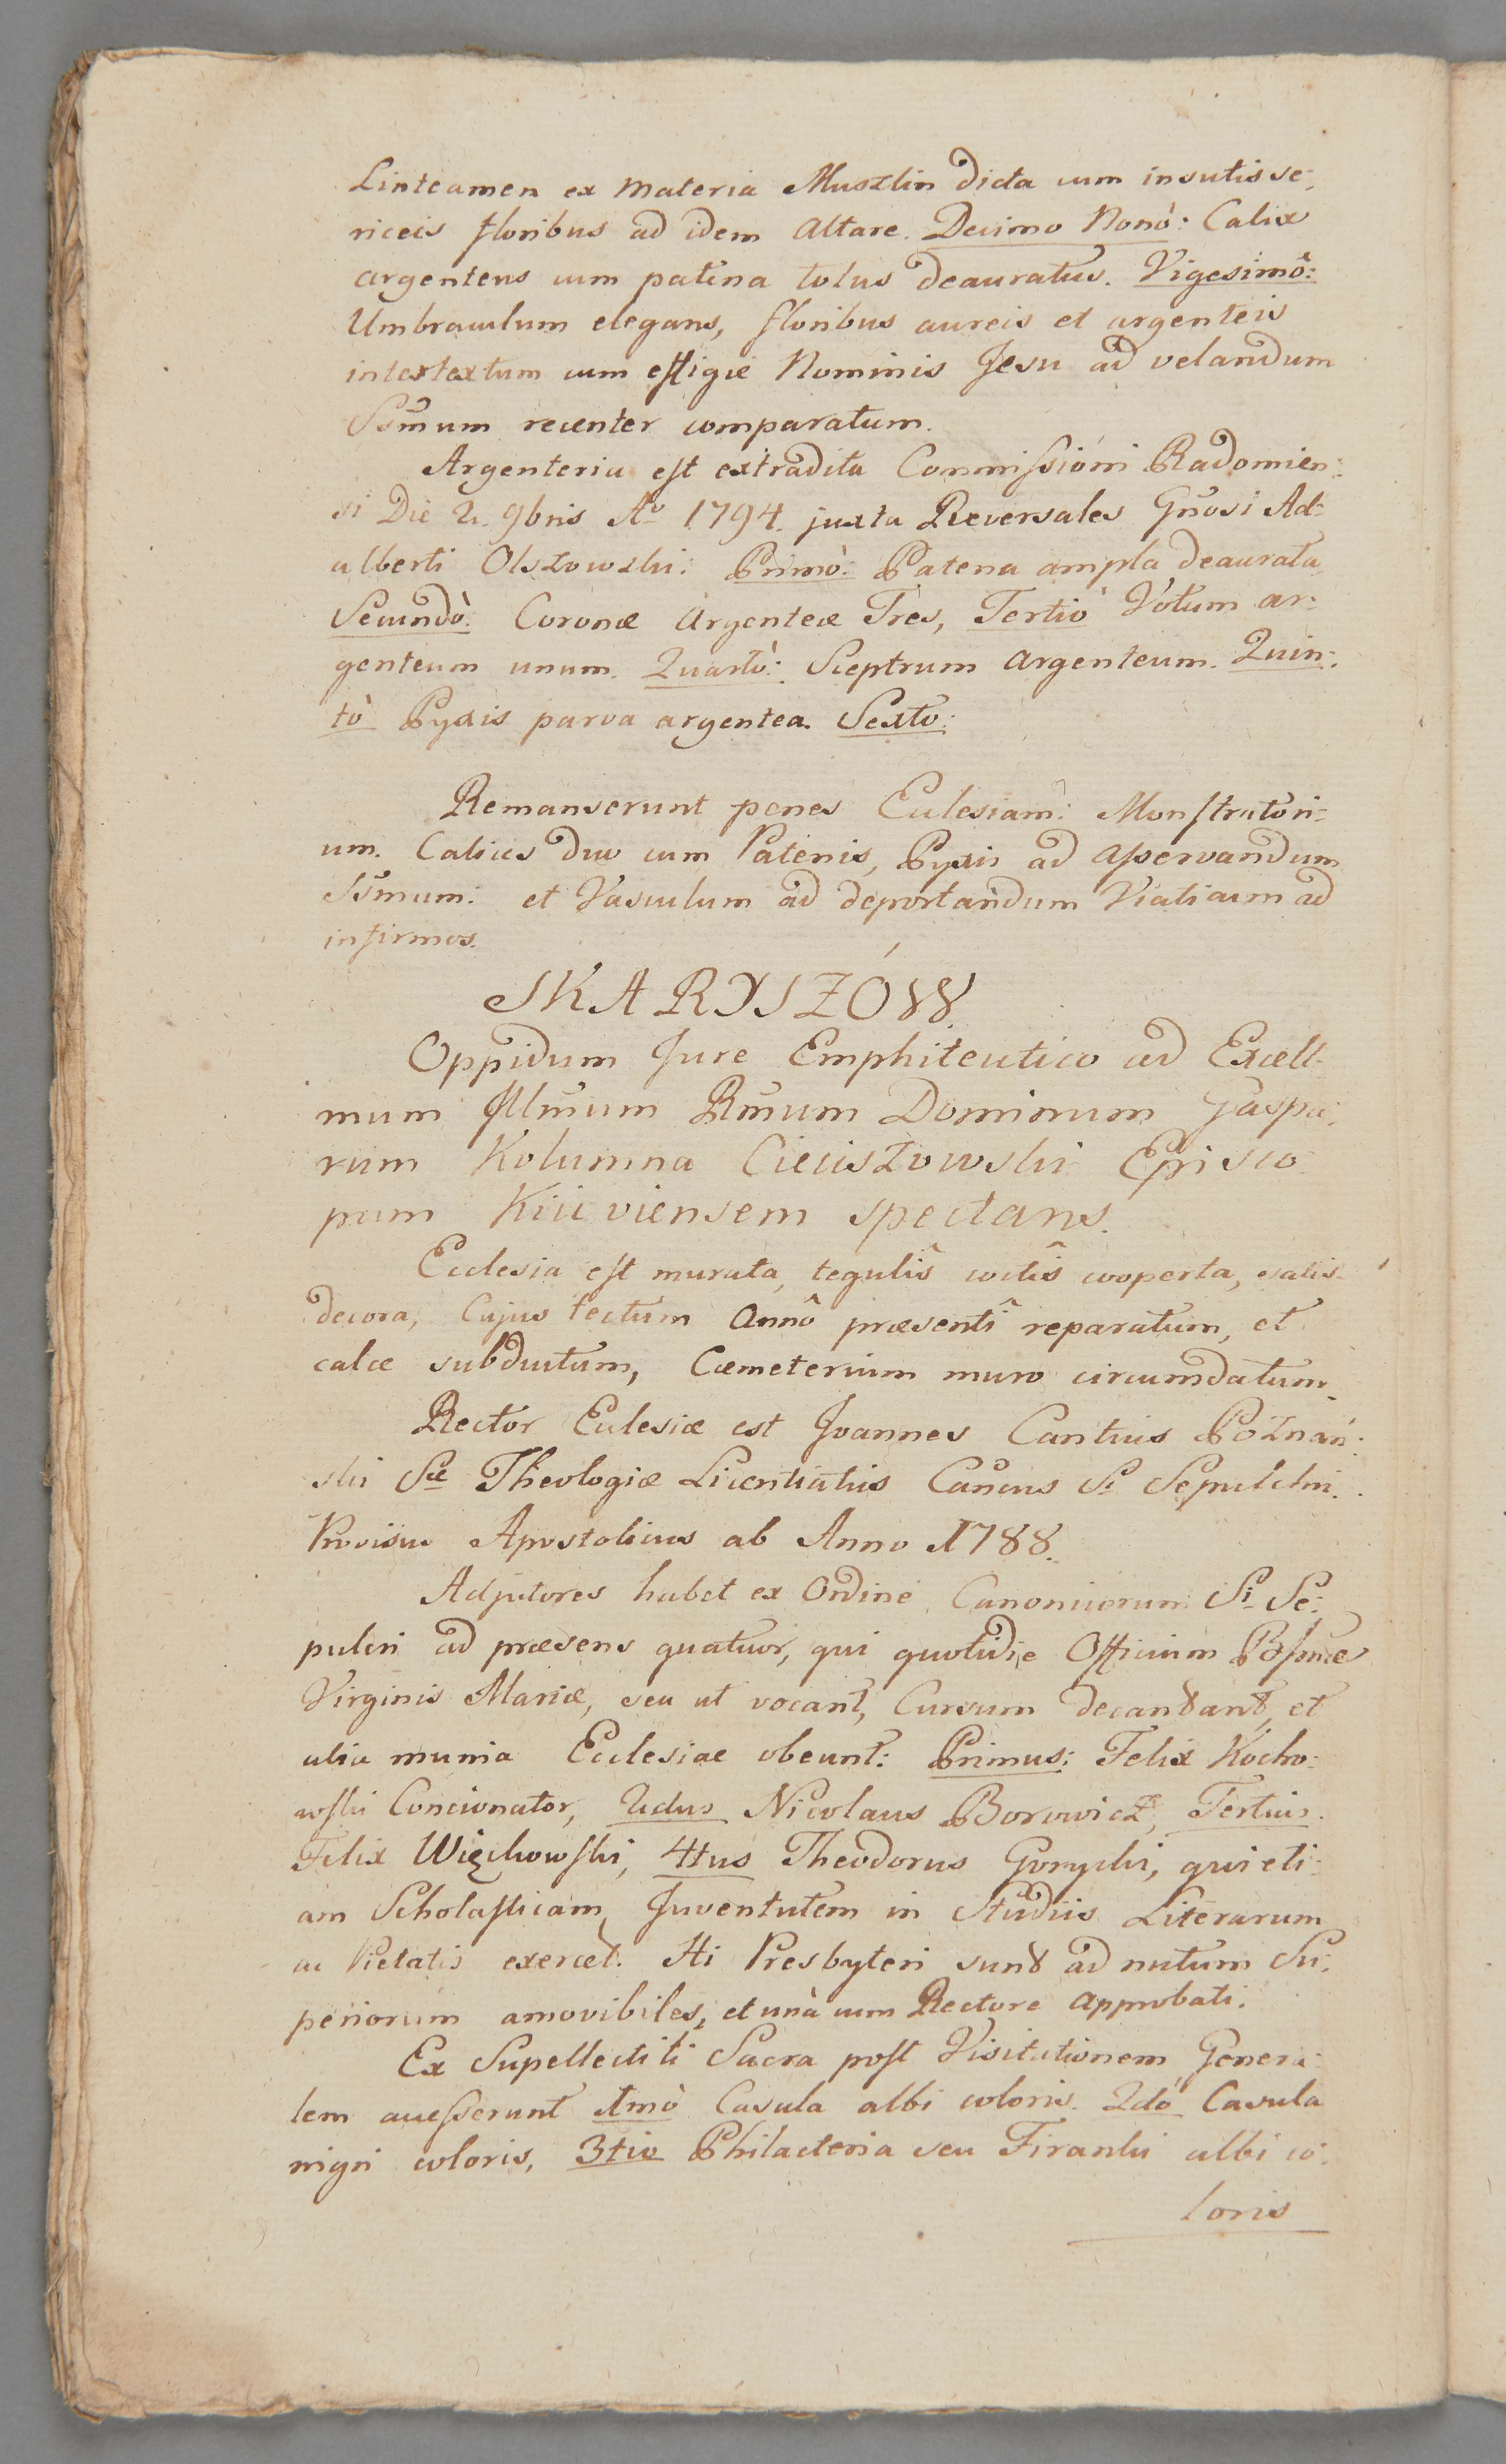 Linteamen ex Materia Muszlin dicta cum insutis se:
riceis floribus ad idem Altare. Decimo Nonò: Calix
argenteus cum patina totus deauratus. Vigesimô:
Umbraculum elegans, floribus aureis et argenteis
intertextum cum effigie Nominis Jesu ad velandum
Ssm̃um recenter comparatum.
Argenteria est extradita Commissioni Radomien:
si Die 2. 9bris Aº 1794. juxta Reversales Gnosi Ad:
alberti Olszowski: Primò: Patena ampla deaurata
Secundò: Coronæ Argenteæ Tres, Tertiò Votum ar:
genteum unum. Quartò: Sceptrum Argenteum. Quin:
tò Pyxis parva argentea. Sexto:
Remanserunt penes Eclesiam: Monstratori:
um. Calices duo cum Patenis, Pyxis ad asservandum
Ssm̃um: et Vasculum ad deportandum Viaticum ad
infirmos.
SKARYSZÓW
Oppidum Jure Emphiteutico ad Excell:
mum Illm̃um Rm̃um Dominum Gaspa:
rum Kolumna Cieciszowski Episco:
pum Kiioviensem spectans.
Ecclesia est murata, tegulis coctis cooperta, satis
decora, Cujus tectum Annô præsentî reparatum, et
calce subductum, Cæmeterium muro circumdatum.
Rector Eclesiæ est Joannes Cantius Poznań:
ski Sæ Theologiæ Licentiatus Cañcus Si Sepulchri.
Provisus Apostolicus ab Anno 1788.
Adjutores habet ex Ordine Canonicorum Si Se:
pulcri ad præsens quatuor, qui quotidie Officium Bssmæ
Virginis Mariæ, seu ut vocant, Cursum decantant, et
alia munia Ecclesiae obeunt: Primus: Felix Kocho:
wski Concionator, 2dus Nicolaus Borowicz, Tertius
Felix Więckowski, 4tus Theodorus Gorycki, qui eti:
am Scholasticam Juventutem in Studiis Literarum
ac Pietatis exercet. Hi Presbyteri sunt ad nutum Su:
periorum amovibiles, et unà cum Rectore Approbati.
Ex Supellectili Sacra post Visitationem Genera:
lem accesserunt 1mò Casula albi coloris. 2dò Casula
nigri coloris, 3tio Philacteria seu Firanki albi co:
loris